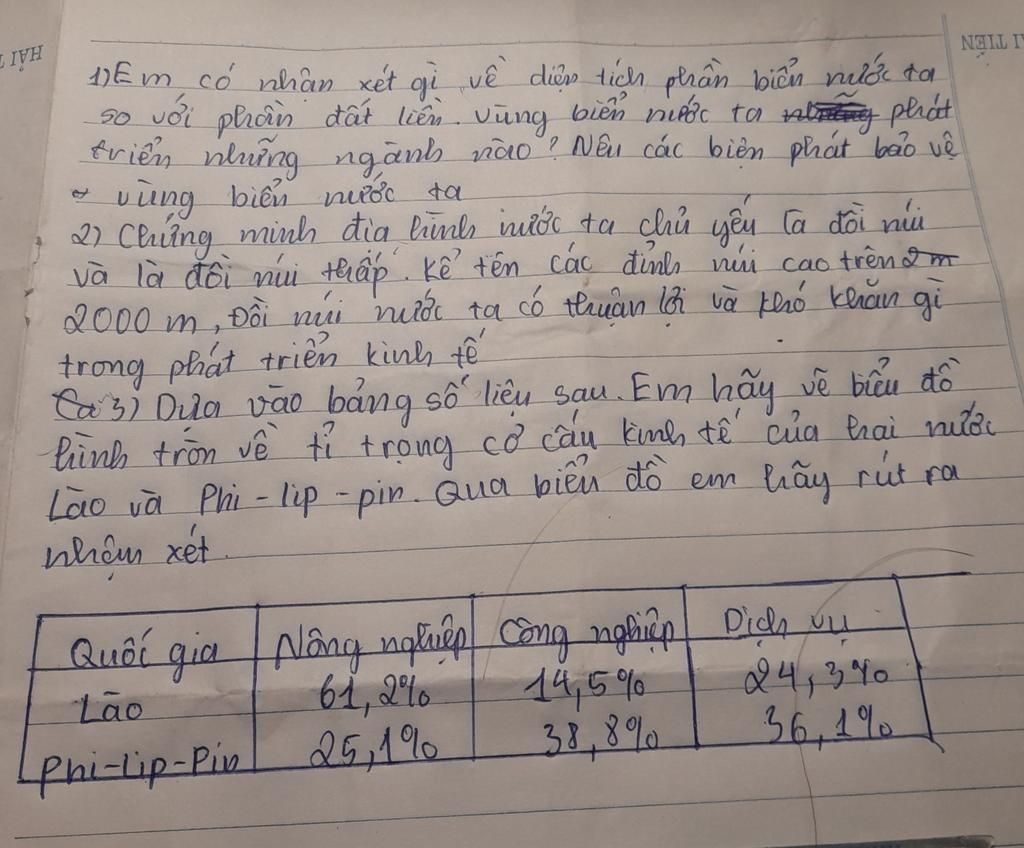 HẢI T
I TIẾN
1) Em có nhận xét gì về diện tích phần biển nước ta
so với phần đất liền. Vùng biển nước ta phát
triển những ngành nào? Nêu các biện phát bảo vệ
vùng biển nước ta
2) Chứng minh địa hình nước ta chủ yếu là đồi núi
và là đồi núi thấp. Kể tên các đỉnh núi cao trên 2m
2000 m, Đồi núi nước ta có thuận lợi và khó khăn gì
trong phát triển kinh tế
3) Dựa vào bảng số liệu sau. Em hãy vẽ biểu đồ
hình tròn về tỉ trọng cơ cấu kinh tế của hai nước
Lào và Phi-lip-pin. Qua biểu đồ em hãy rút ra
nhận xét.
Quốc gia Nông nghiệp Công nghiệp Dịch vụ
Lào 61,2% 14,5% 24,3%
Phi-lip-Pin 25,1% 38,8% 36,1%